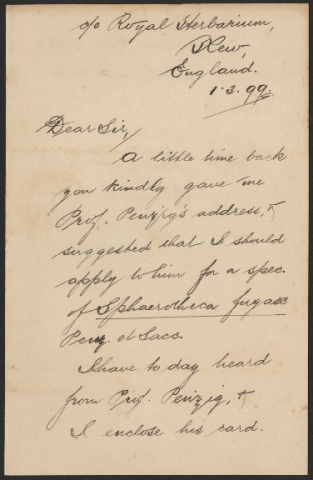 c/o Royal Herbarium,
Kew,
England.
1.3.99.
Dear Sir,
A little time back
you kindly gave me
Prof. Penzig's address, &
suggested that I should
apply to him for a spec.
of Sphaerotheca fugax
Penz. et Sacc.
I have to day heard
from Prof. Penzig, &
I enclose his card.